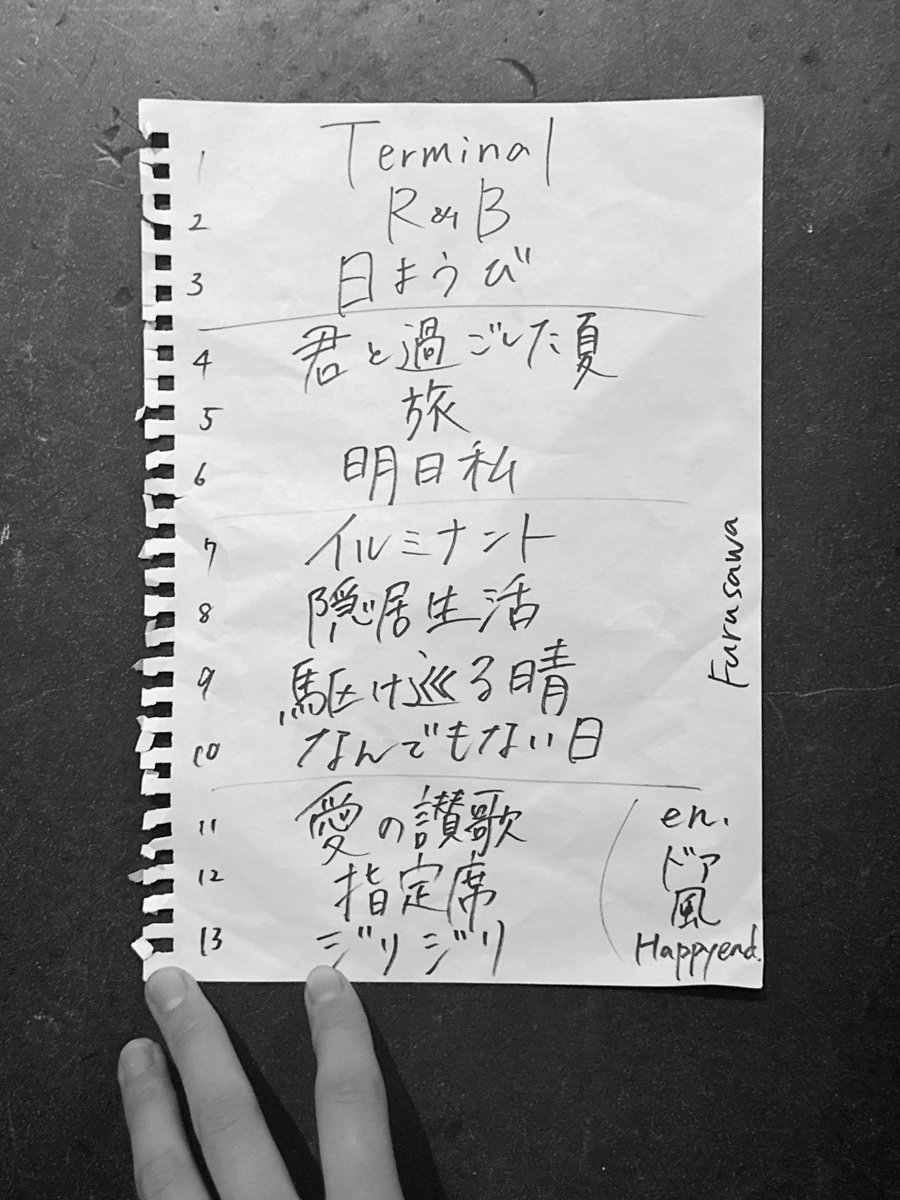 1 Terminal
2 R&B
3 日ようび
4 君と過ごした夏
5 旅
6 明日私
7 イルミナント
8 隠居生活
9 駆け巡る晴
10 なんでもない日
11 愛の讃歌
12 指定席
13 ジリジリ
en.
ドア
風
Happyend.
Furusawa